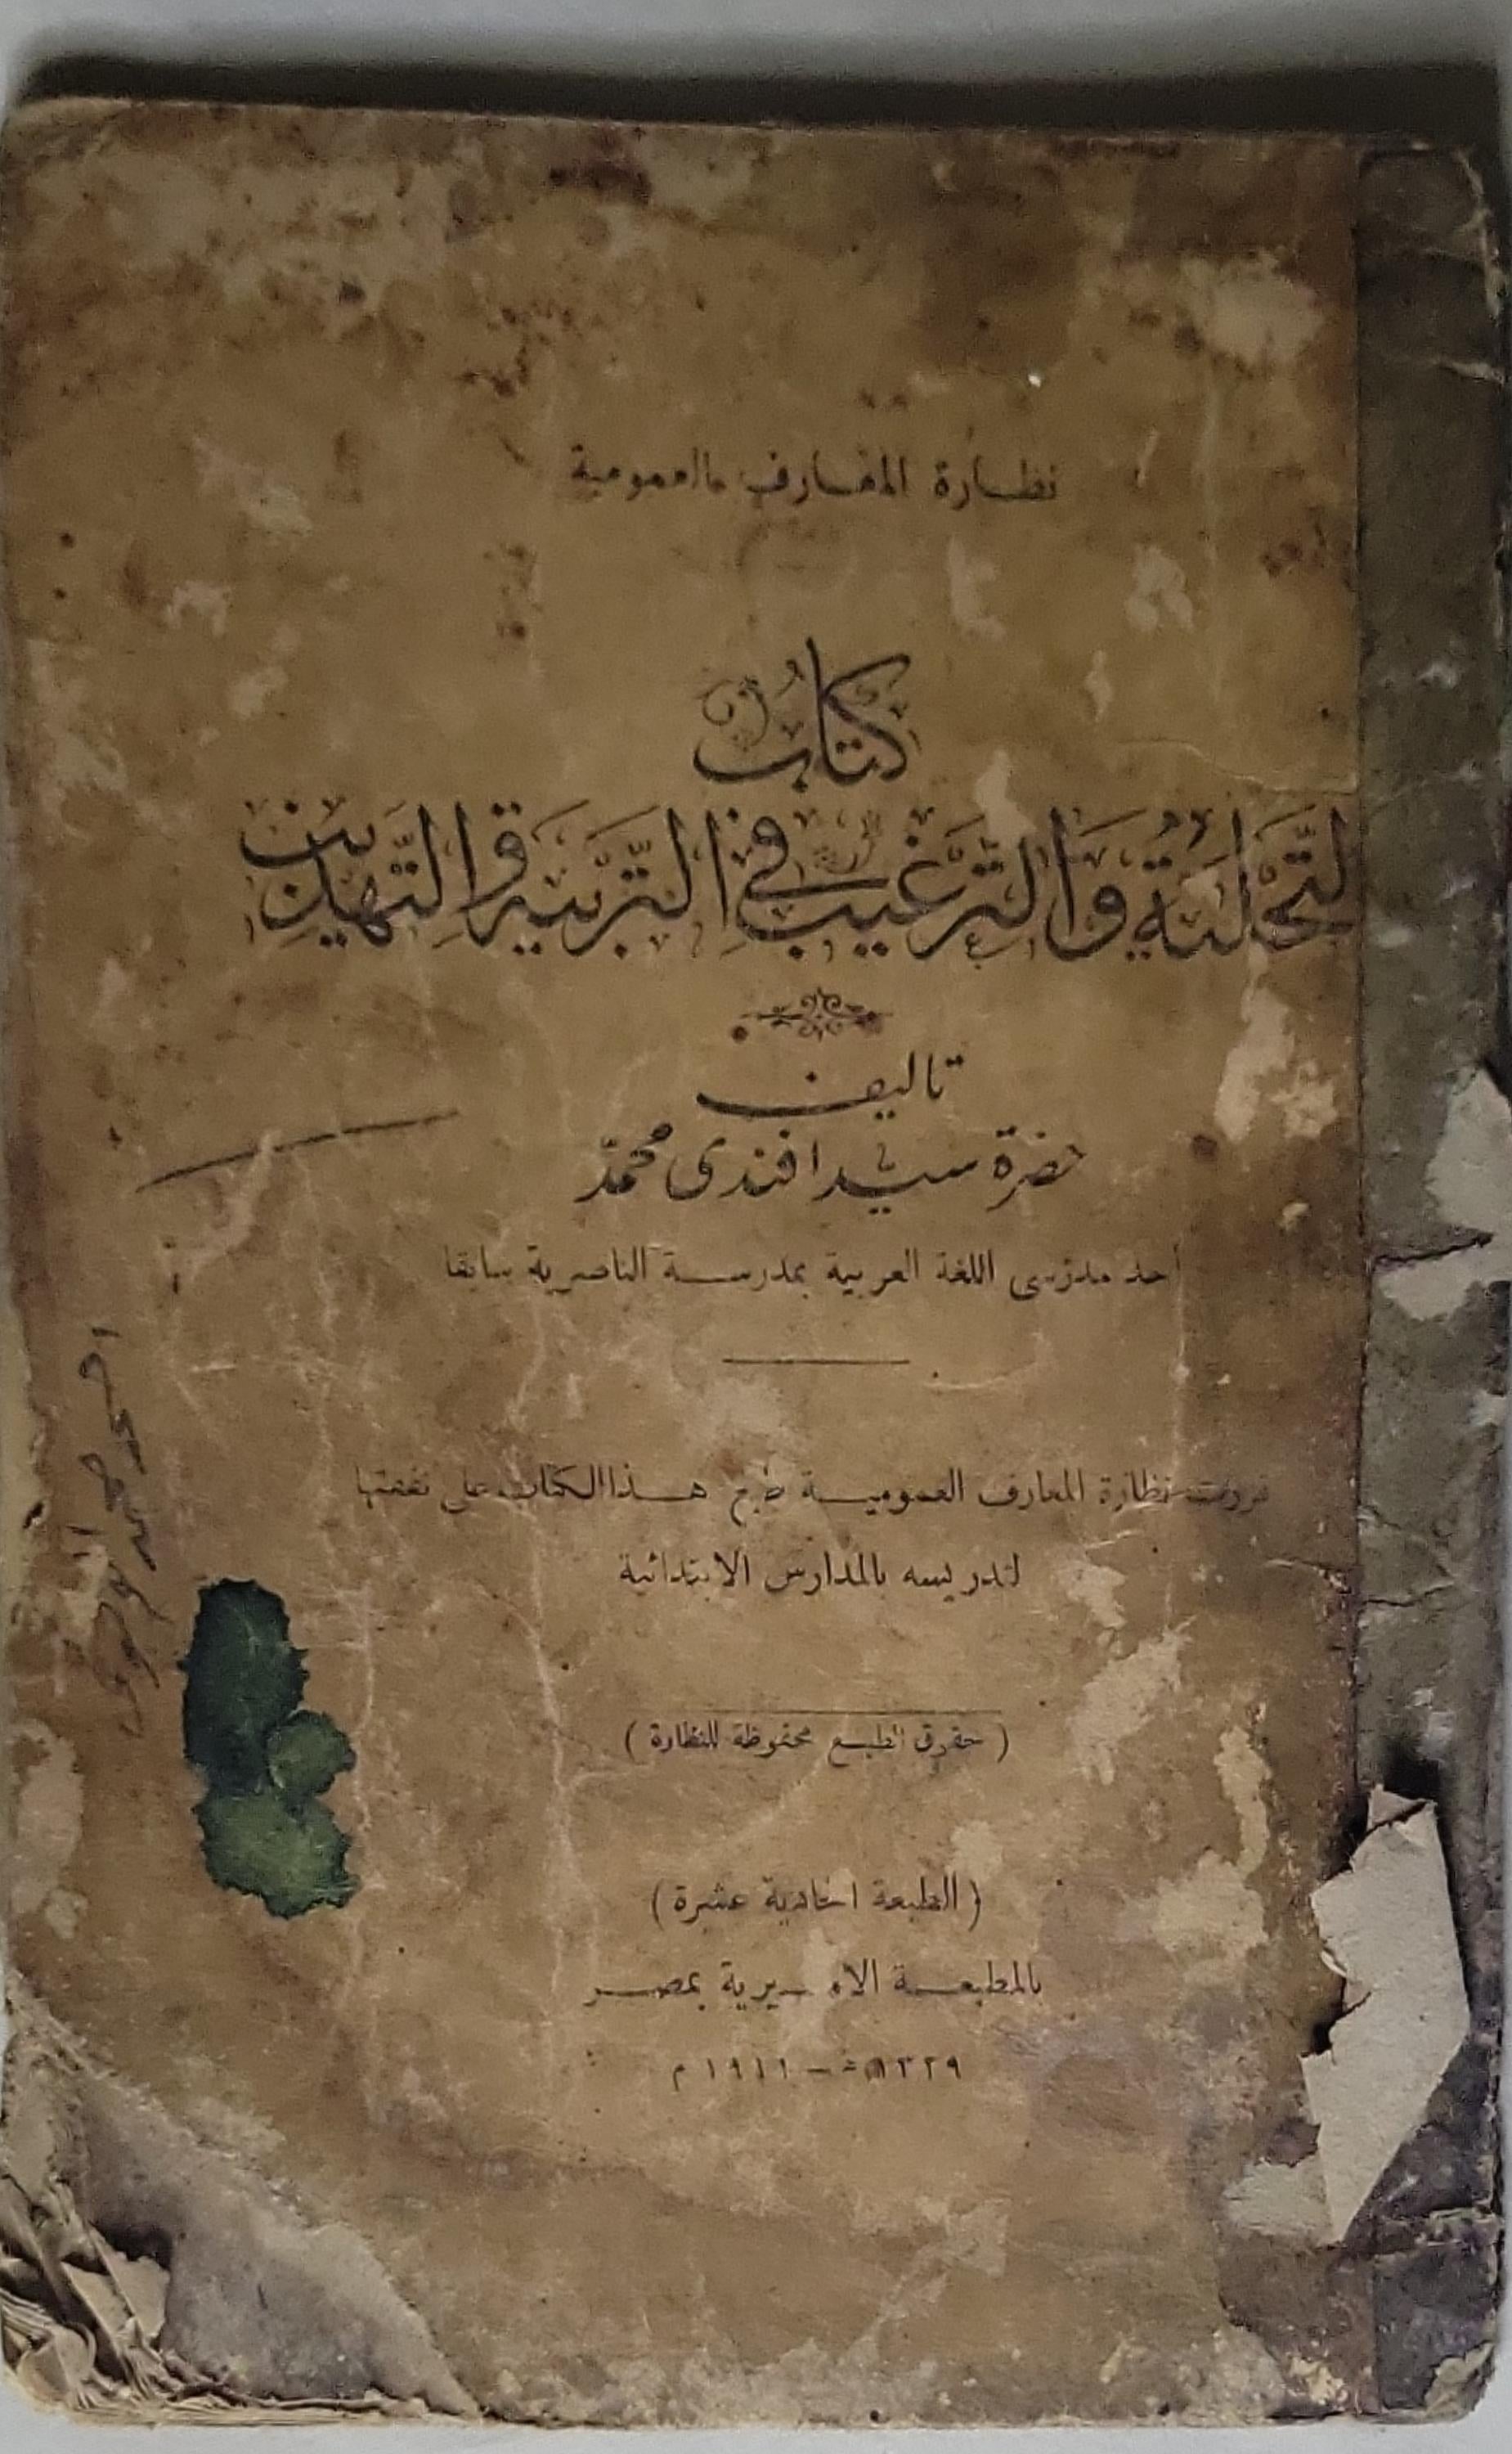 نظارة المعارف العمومية
كتاب
التحلية والترغيب في التربية والتهذيب
تأليف
حضرة سيد افندى محمد
أحد مدرسى اللغة العربية بمدرسة الناصرية سابقا
قررت نظارة المعارف العمومية طبع هذا الكتاب على نفقتها
لتدريسه بالمدارس الابتدائية
(حقوق الطبع محفوظة للنظارة)
(الطبعة الحادية عشرة)
بالمطبعة الاميرية بمصر
١٣٢٩ه – ١٩١١ م
احمد محمد